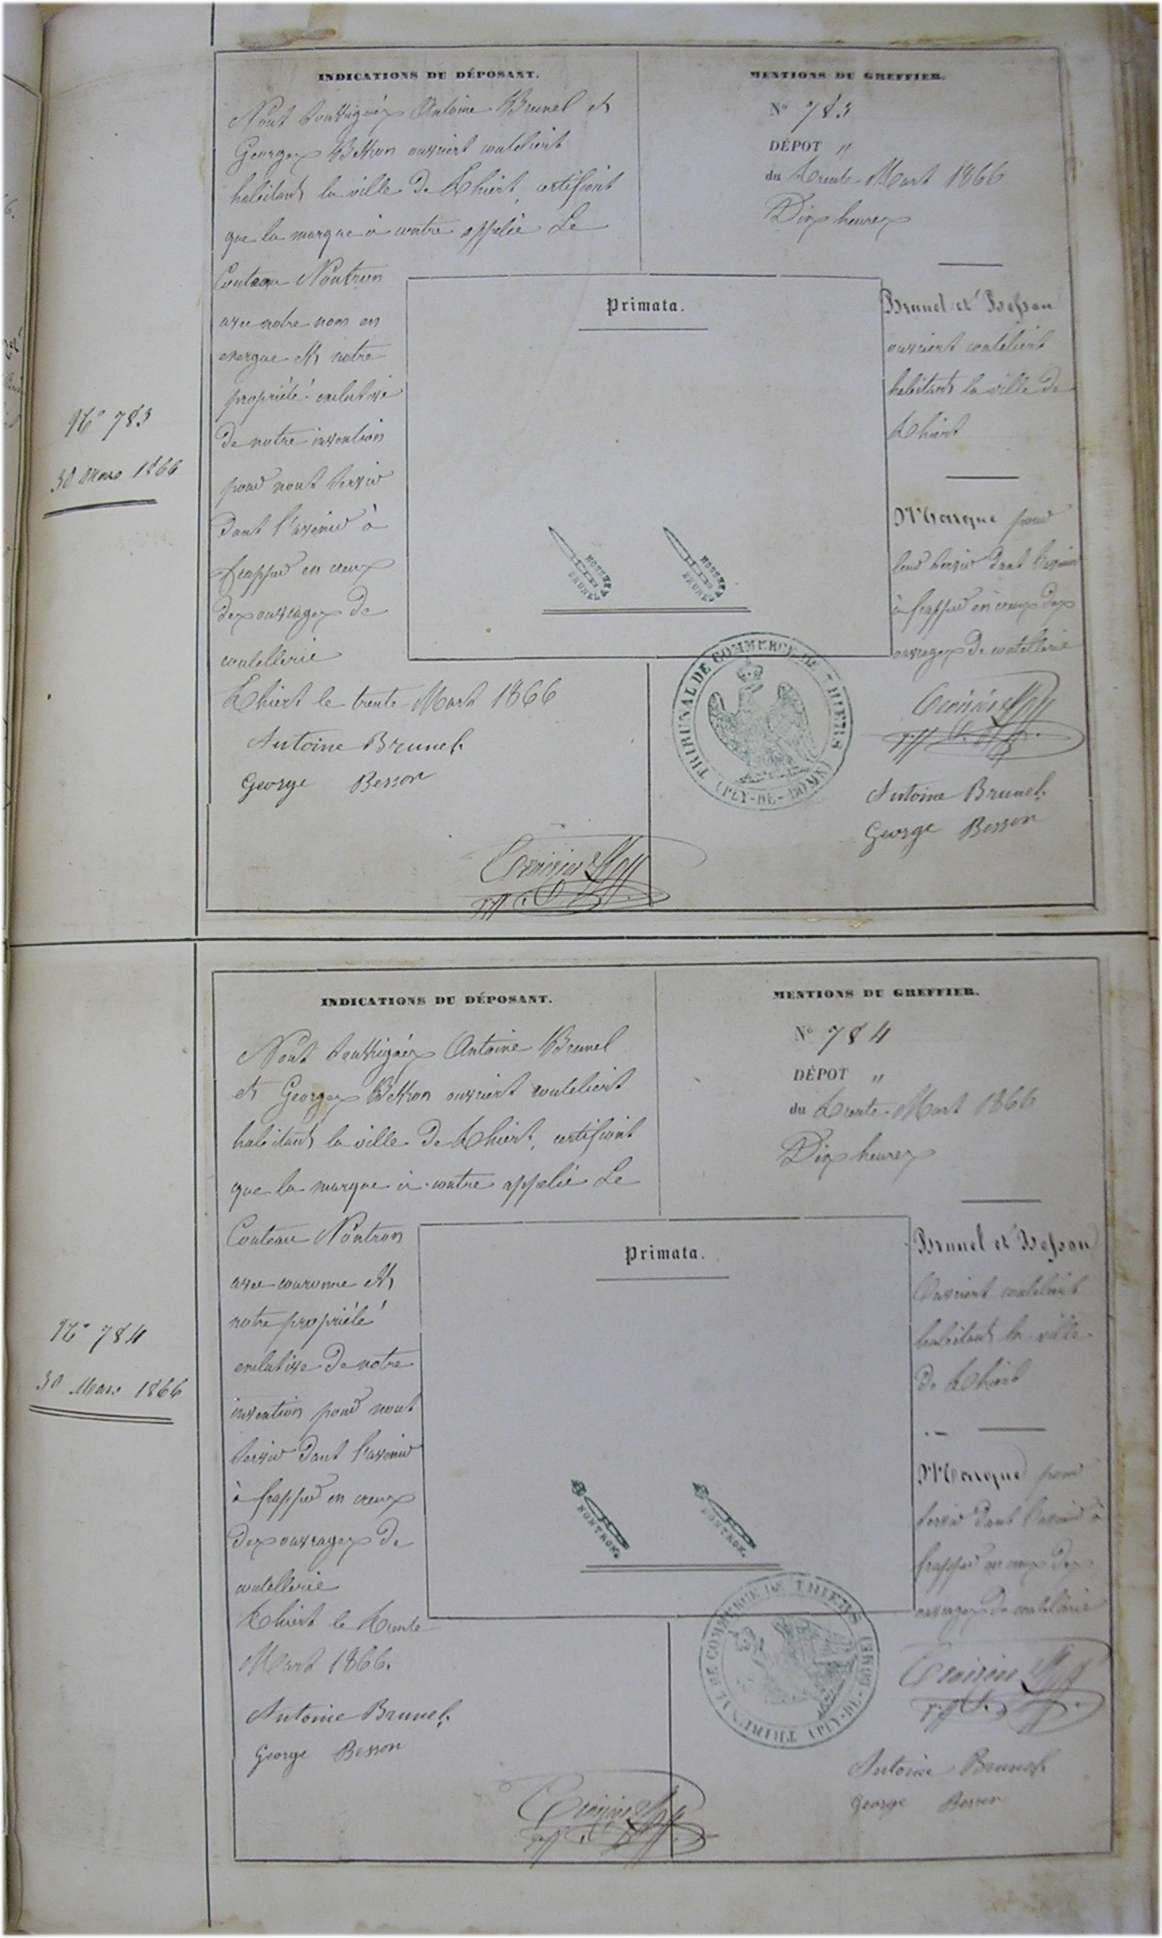 INDICATIONS DU DÉPOSANT.
Nous soussignés Antoine Brunel et
Georges Besson ouvriers couteliers
habitants la ville de Thiers, certifions
que la marque ci contre appelée Le
Couteau Nontron
avec notre nom en
exergue est notre
propriété exclusive
de notre invention
pour nous servir
dans l'avenir à
frapper en creux
des ouvrages de
coutellerie
Thiers le trente Mars 1866
Antoine Brunel.
George Besson
MENTIONS DU GREFFIER.
N° 783
DÉPOT "
du Trente Mars 1866
Dix heures
Brunel et Besson
ouvriers couteliers
habitants la ville de
Thiers
Marque pour
leur servir dans l'avenir
à frapper en creux des
ouvrages de coutellerie
Antoine Brunel.
George Besson
N° 783
30 Mars 1866
Primata.
BESSON
BRUNEL
BESSON
BRUNEL
TRIBUNAL DE COMMERCE DE THIERS
(PUY-DE-DOME)
INDICATIONS DU DÉPOSANT.
Nous soussignés Antoine Brunel
et Georges Besson ouvriers couteliers
habitants la ville de Thiers, certifions
que la marque ci-contre appelée Le
Couteau Nontron
avec couronne est
notre propriété
exclusive de notre
invention pour nous
servir dans l'avenir
à frapper en creux
des ouvrages de
coutellerie
Thiers le trente
Mars 1866.
Antoine Brunel.
George Besson
MENTIONS DU GREFFIER.
N° 784
DÉPOT "
du Trente Mars 1866
Dix heures
Brunel et Besson
Ouvriers couteliers
habitants la ville
de Thiers
Marque pour
servir dans l'avenir à
frapper en creux des
ouvrages de coutellerie
Antoine Brunel.
George Besson
N° 784
30 Mars 1866
Primata.
NONTRON.
NONTRON.
TRIBUNAL DE COMMERCE DE THIERS
(PUY-DE-DOME)